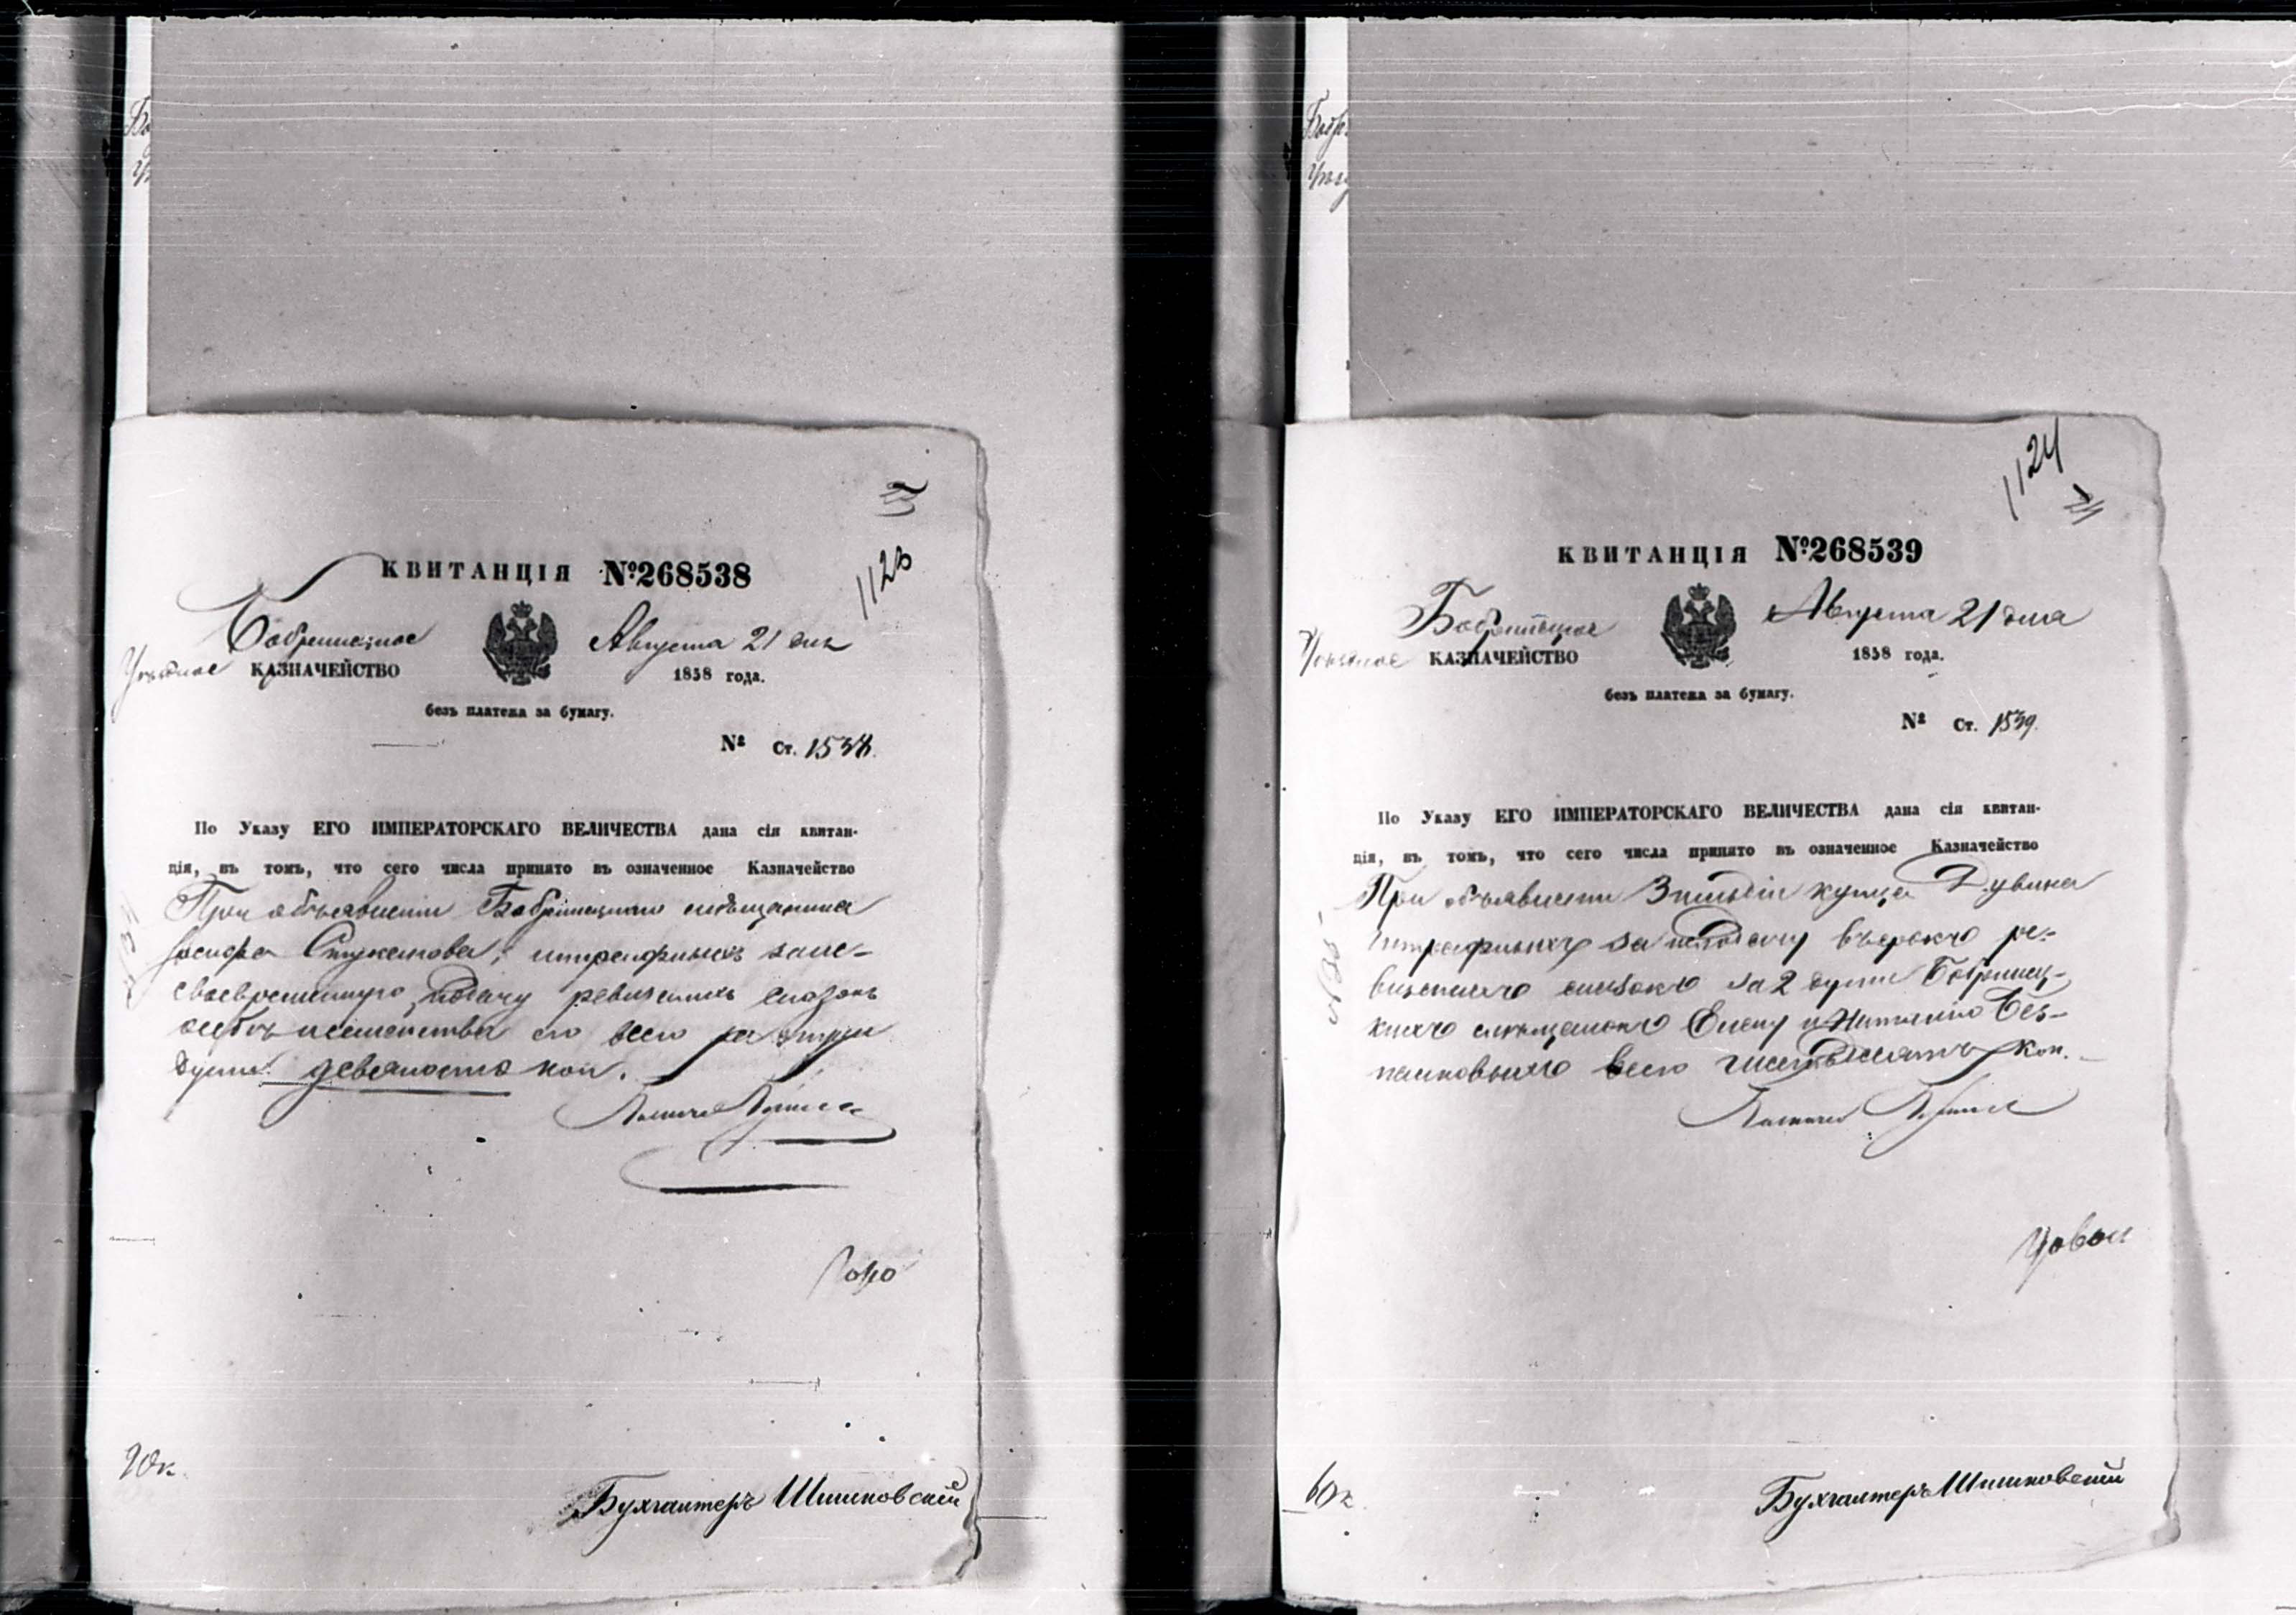 1123
КВИТАНЦІЯ №268538
Бобринецкое Августа 21 дня
Уѣздное КАЗНАЧЕЙСТВО 1858 года.
безъ платежа за бумагу.
№ Ст. 1538.
По Указу ЕГО ИМПЕРАТОРСКАГО ВЕЛИЧЕСТВА дана сія квитан-
ція, въ томъ, что сего числа принято въ означенное Казначейство
При объявленіи Бобринецкаго мѣщанина
Іосифа штрафныхъ зане-
своевременную подачу ревизскихъ сказокъ
о всего за три
души девяносто коп.
90к.
Бухгалтеръ Шишковскій
1124
КВИТАНЦІЯ №268539
Бобринецкое Августа 21 дня
Уѣздное КАЗНАЧЕЙСТВО 1858 года.
безъ платежа за бумагу.
№ Ст. 1539.
По Указу ЕГО ИМПЕРАТОРСКАГО ВЕЛИЧЕСТВА дана сія квитан-
ція, въ томъ, что сего числа принято въ означенное Казначейство
При объявленіи 3 гильдіи купца Дувина
штрафныхъ за неподачу въ срокъ ре-
визскихъ за 2 души Бобринец-
кихъ мѣщанокъ Елену и
всего шестьдесятъ коп.
60к.
Бухгалтеръ Шишковскій